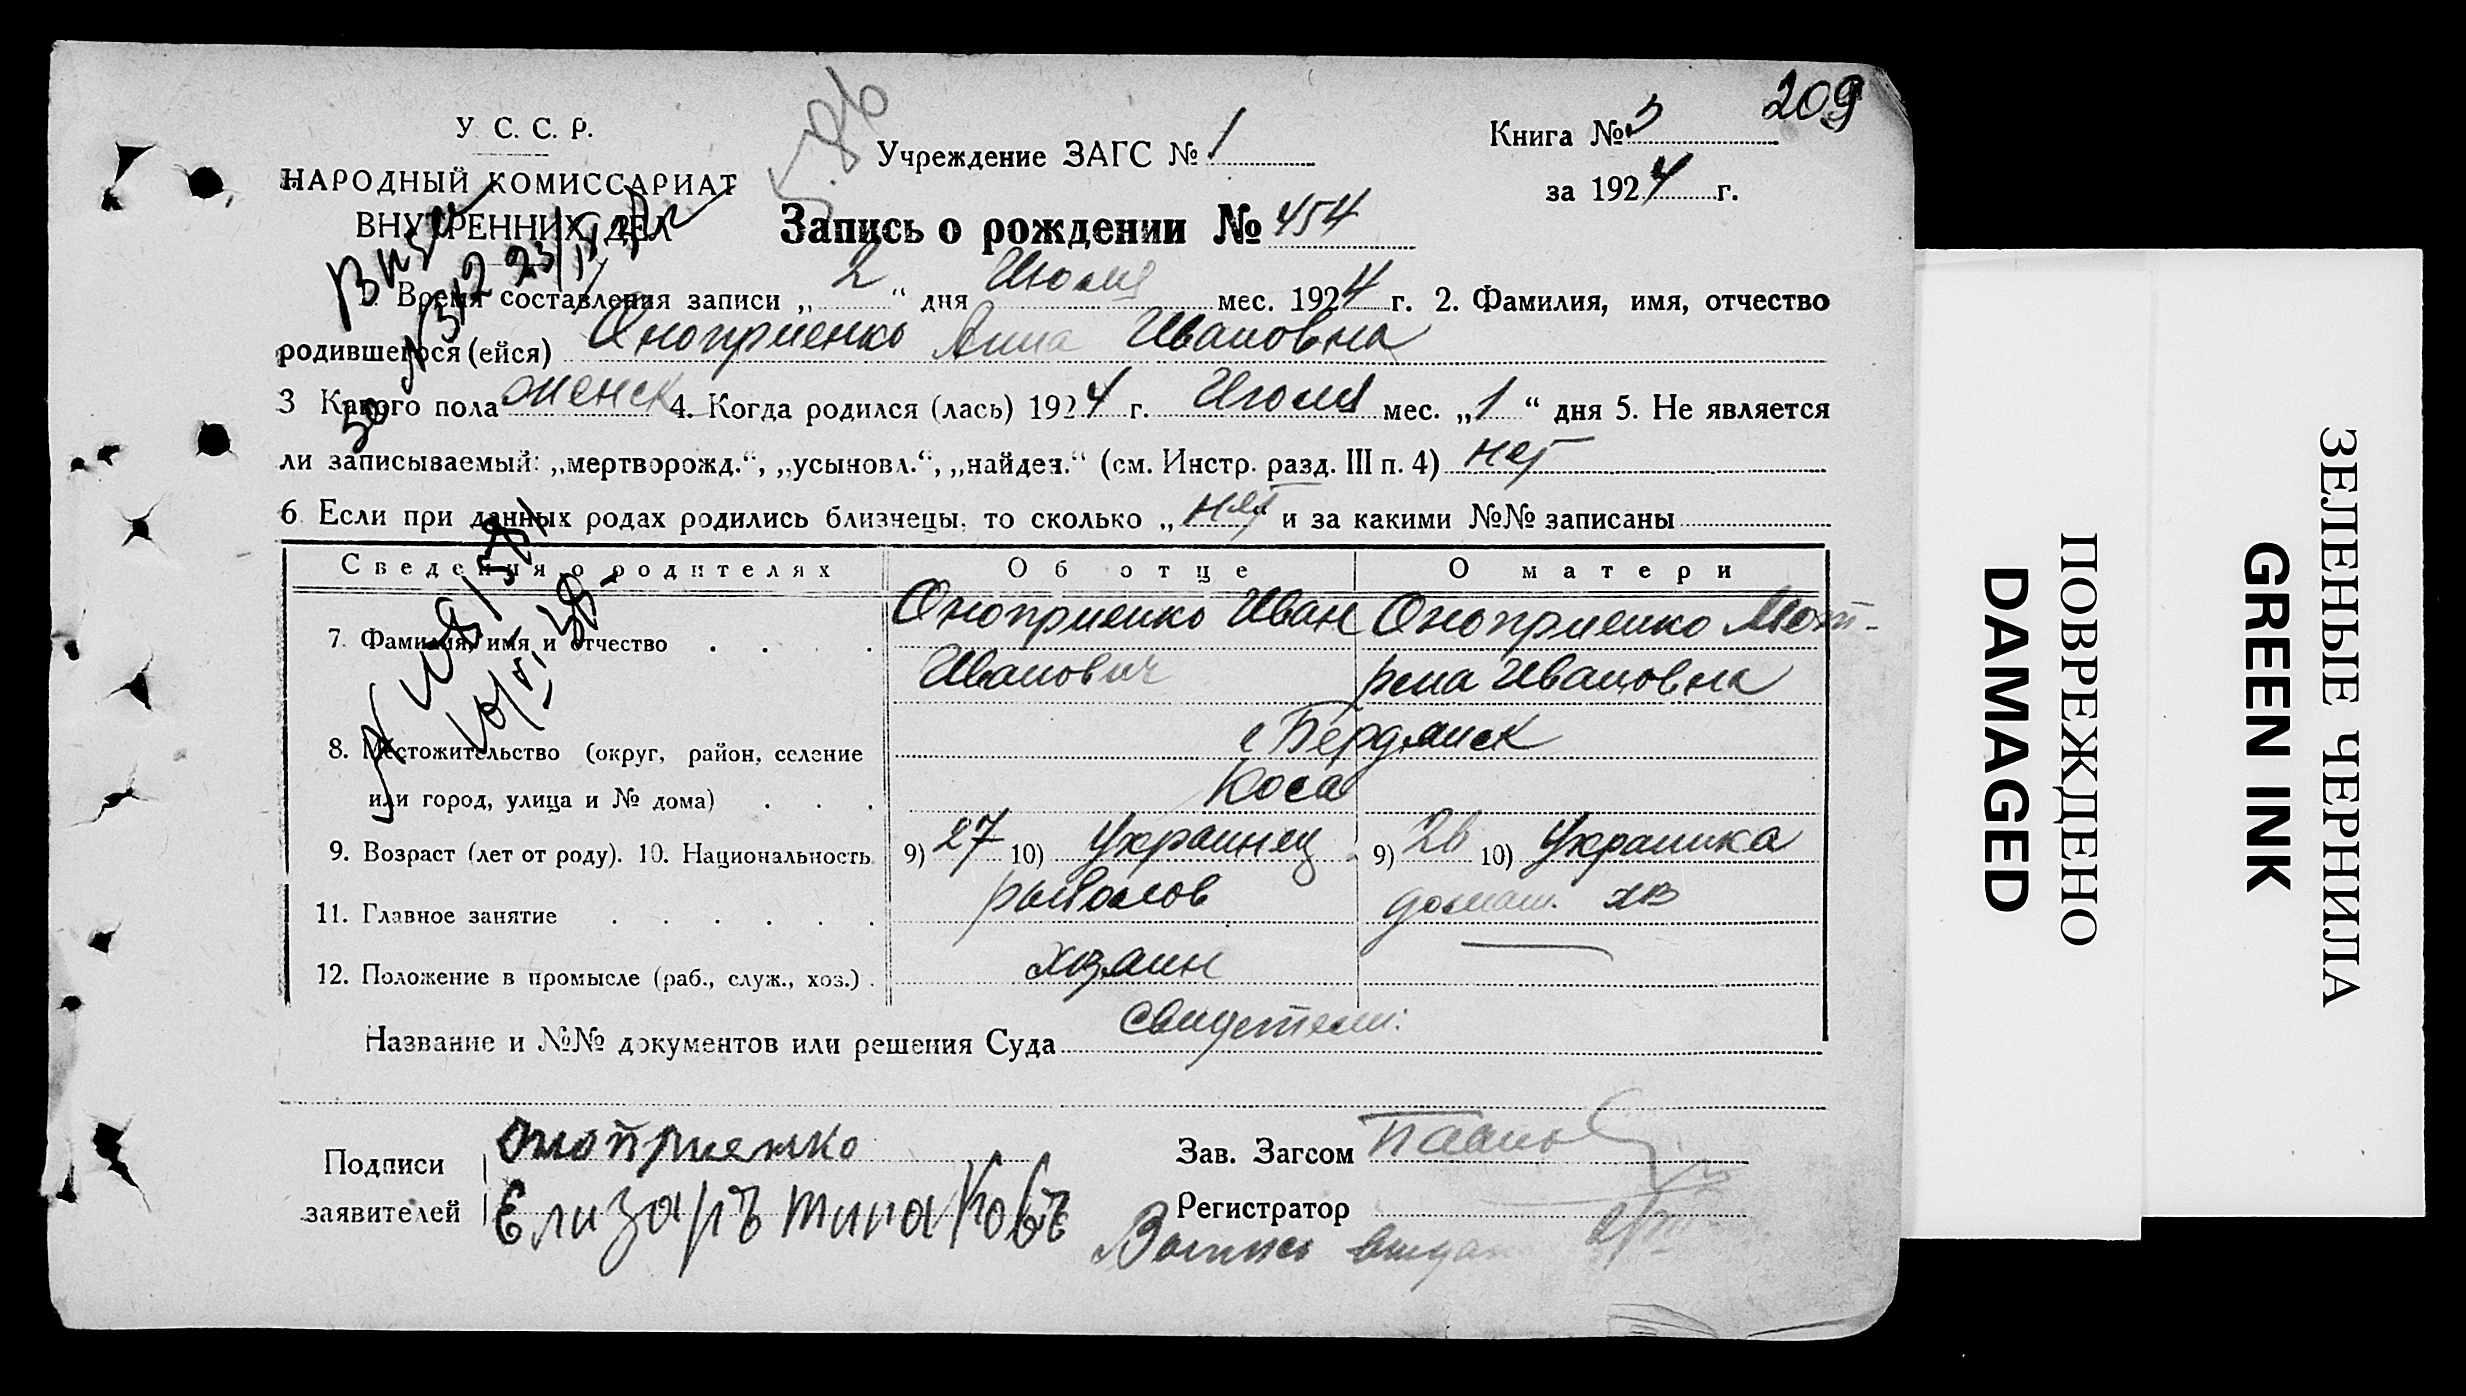 209
У. С. С. Р.
НАРОДНЫЙ КОМИССАРИАТ
ВНУТРЕННИХ ДЕЛ
5.86
Учреждение ЗАГС № 1
Книга № 3
за 1924 г.
Запись о рождении № 454
1. Время составления записи „ 2 “ дня Июля мес. 1924 г. 2. Фамилия, имя, отчество
родившегося (ейся) Оноприенко Анна Ивановна
3 Какого пола женск 4. Когда родился (лась) 1924 г. Июля мес. „ 1 “ дня 5. Не является
ли записываемый: „мертворожд.“, „усыновл.“, „найден.“ (см. Инстр. разд. III п. 4) нет
6 Если при данных родах родились близнецы, то сколько „ нет “ и за какими №№ записаны
Сведения о родителях Об отце О матери
7. Фамилия, имя и отчество Оноприенко Иван Оноприенко Мот-
Иванович рена Ивановна
8. Местожительство (округ, район, селение г Бердянск
или город, улица и № дома) Коса
9. Возраст (лет от роду). 10. Национальность 9) 27 10) Украинец 9) 26 10) Украинка
11. Главное занятие рыболов домаш. хз
12. Положение в промысле (раб., служ., хоз.) хозяин
Название и №№ документов или решения Суда свидетели:
Подписи Оноприенко Зав. Загсом
заявителей Елизаръ Регистратор
ПОВРЕЖДЕНО
DAMAGED
ЗЕЛЕНЫЕ ЧЕРНИЛА
GREEN INK